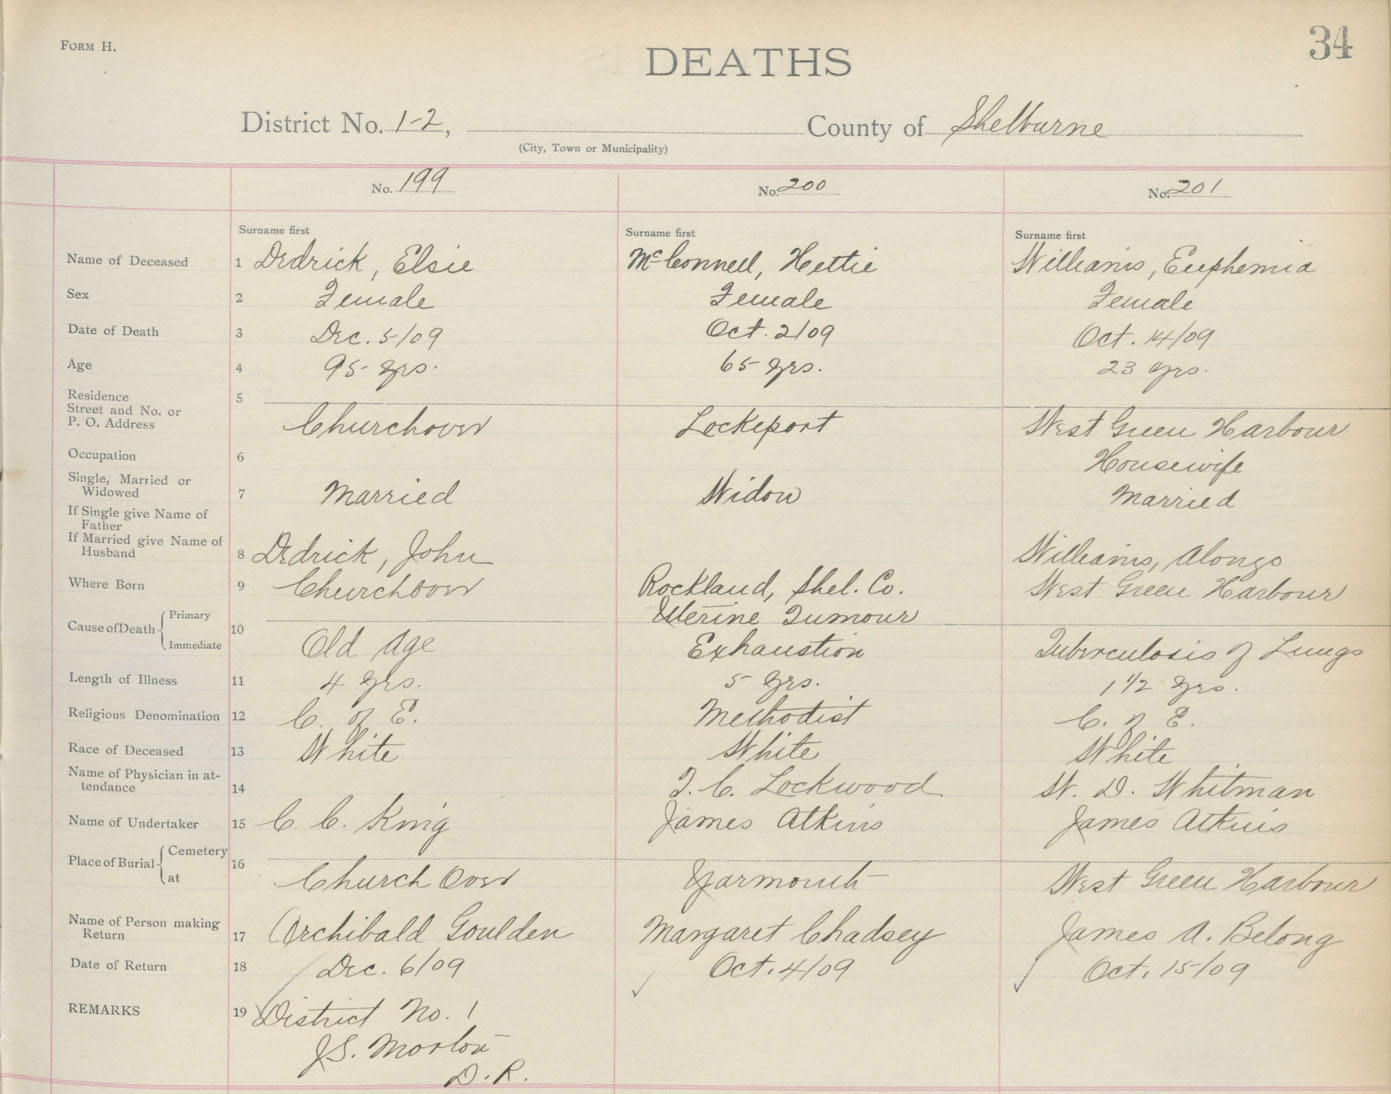 FORM H.
34
DEATHS
District No. 1-2, County of Shelburne
(City, Town or Municipality)
No. 199 No. 200 No. 201
Surname first Surname first Surname first
Name of Deceased 1 Dedrick, Elsie McConnell, Hettie Williams, Euphemia
Sex 2 Female Female Female
Date of Death 3 Dec. 5/09 Oct. 2/09 Oct. 14/09
Age 4 95 yrs. 65 yrs. 23 yrs.
Residence 5
Street and No. or
P. O. Address Churchover Lockeport West Green Harbour
Occupation 6 Housewife
Single, Married or
Widowed 7 Married Widow Married
If Single give Name of
Father
If Married give Name of
Husband 8 Dedrick, John Williams, Alonzo
Where Born 9 Churchover Rockland, Shel. Co. West Green Harbour
Cause of Death Primary 10 Uterine Tumour
Immediate Old Age Exhaustion Tuberculosis of Lungs
Length of Illness 11 4 yrs. 5 yrs. 1 1/2 yrs.
Religious Denomination 12 C. of E. Methodist C. of E.
Race of Deceased 13 White White White
Name of Physician in at-
tendance 14 T. C. Lockwood W. D. Whitman
Name of Undertaker 15 C. C. King James Atkins James Atkins
Place of Burial Cemetery 16
at Church Over Yarmouth West Green Harbour
Name of Person making
Return 17 Archibald Goulden Margaret Chadsey James A. Belong
Date of Return 18 Dec. 6/09 Oct. 4/09 Oct. 15/09
REMARKS 19 District No. 1
J.S. Morton
D.R.